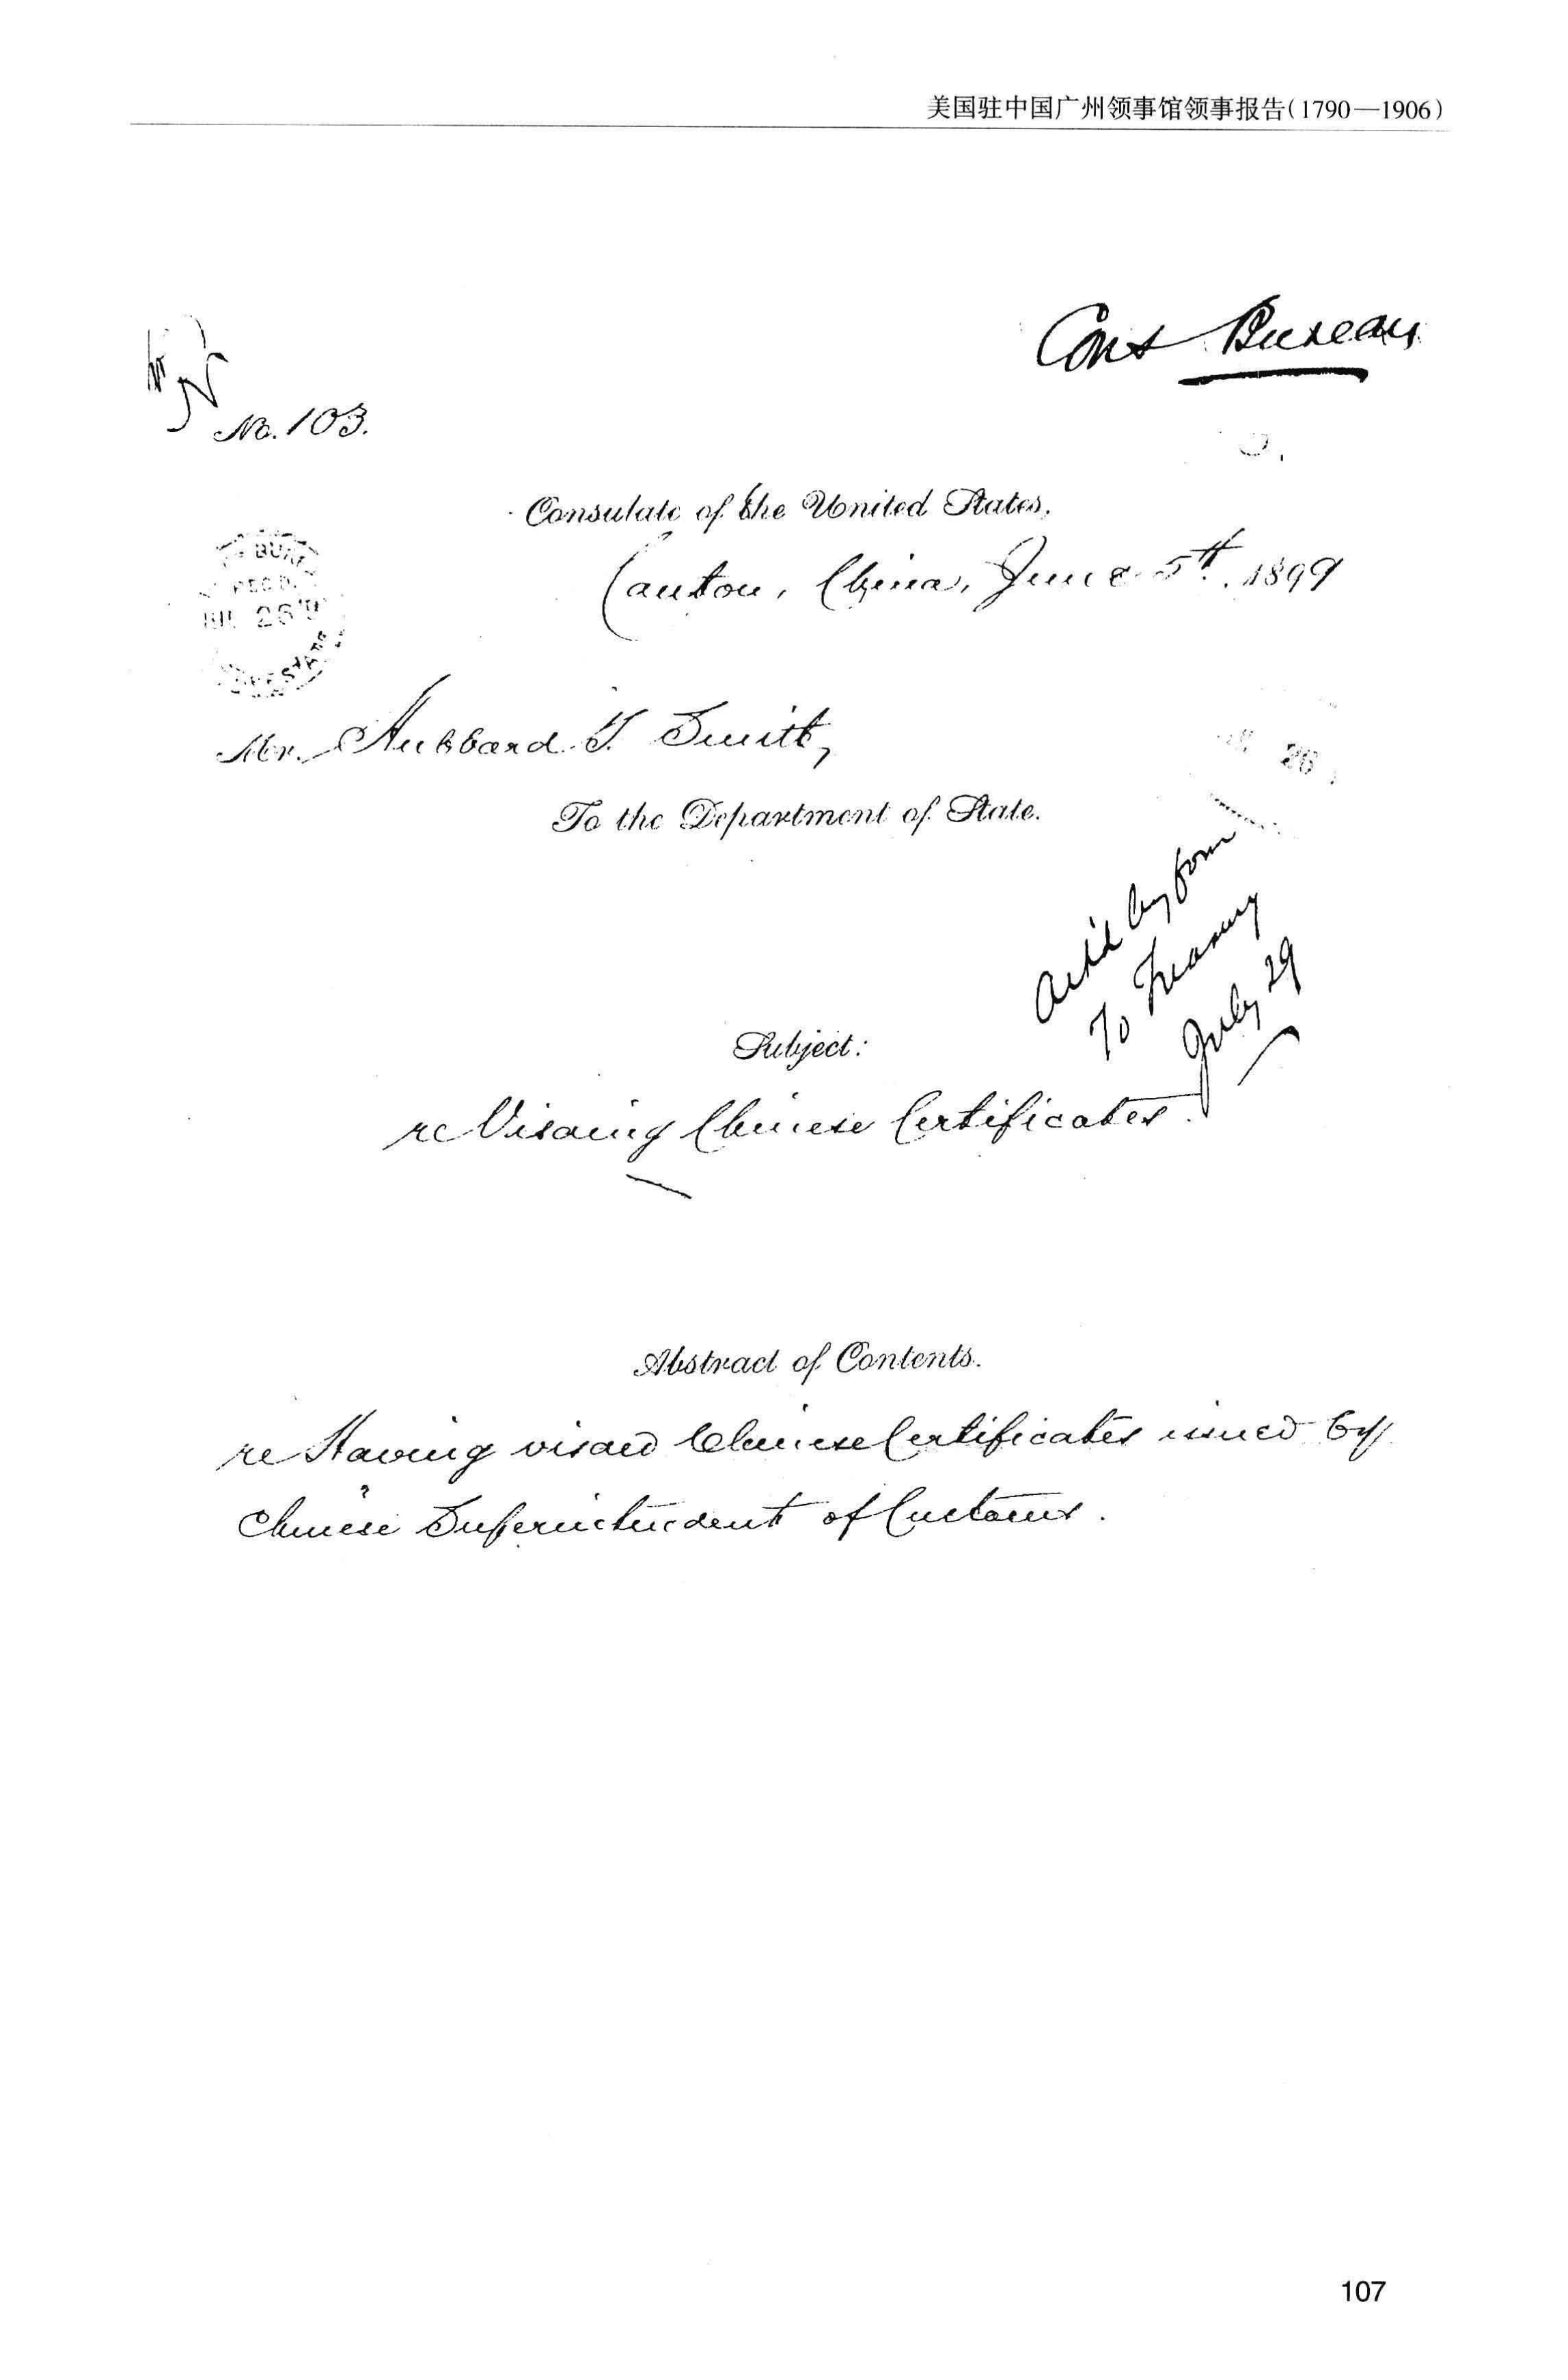 美国驻中国广州领事馆领事报告(1790—1906)
Cons Bureau
No. 103.
Consulate of the United States,
Canton, China, June 5th, 1899
Mr. Hubbard T. Smith,
To the Department of State.
Ack'd by form
To Treasury
July 29
Subject:
re Visaing Chinese Certificates.
Abstract of Contents.
re Having visaed Chinese Certificates issued by
Chinese Superintendent of Customs.
107